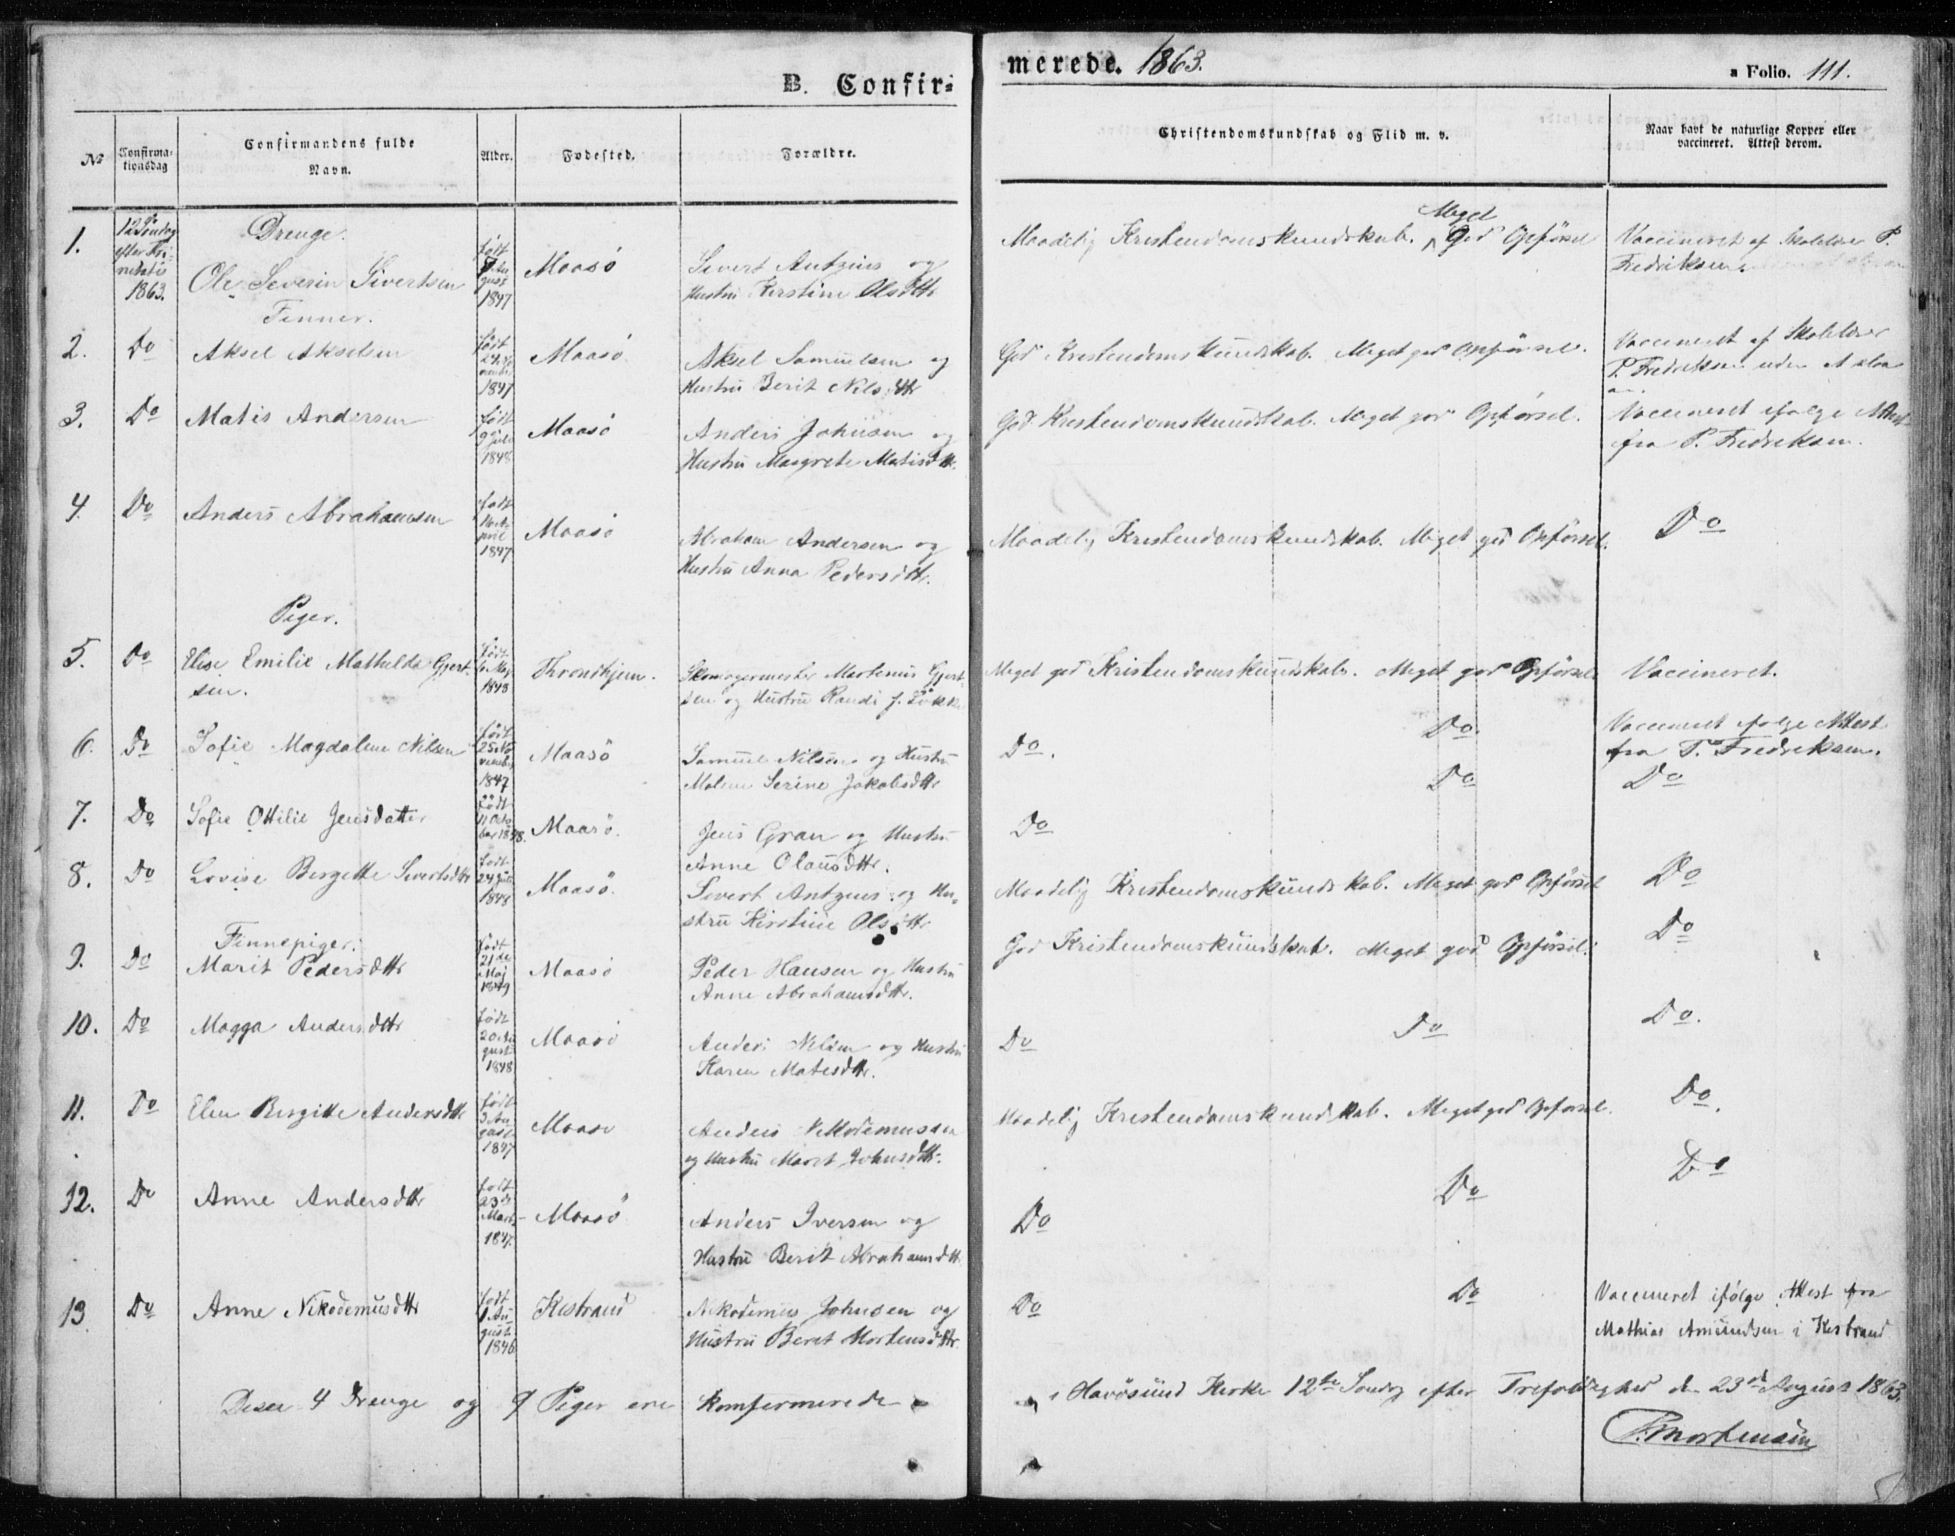 B. Confir-
merede. 1863.
a Folio. 111.
No
Confirma-
tionsdag
Confirmandens fulde
Navn.
Alder.
Fødested.
Forældre.
Christendomskundskab og Flid m. v.
Naar havt de naturlige Kopper eller
vaccineret. Attest derom.
Drenge.
1. 12te Søndag efter Tri-nitatis 1863. Ole Severin Sivertsen født August 1847 Maasö Sivert Antzius og
Hustru Kirstine Olsdttr
Maadelig Kristendomskundskab. Meget God Opförsel
Vaccineret af Skolelærer P.
Fredriksen
Finner.
2. Do Aksel Akselsen født 1847 Maasö Aksel Samuelsen og
Hustru Berit Nilsdttr
God Kristendomskundskab. Meget god Opförsel.
Vaccineret af Skolelærer
P. Fredriksen uden Attest
3. Do Matis Andersen født 9de Juli 1848 Maasö Anders Johnsen og
Hustru Margrete Matisdttr.
God Kristendomskundskab. Meget god Opförsel.
Vaccineret ifölge Attest
fra P. Fredriksen.
4. Do Anders Abrahamsen født April 1847 Maasö Abraham Andersen og
Hustru Anna Pedersdttr.
Maadelig Kristendomskundskab. Meget god Opförsel.
Do
Piger.
5. Do Elise Emilie Mathilde Gjert-
sen.
født 6 Maj 1848 Throndhjem. Skomagermester Martenius Gjert-
sen og Hustru Randi J. Løkke
Meget god Kristendomskundskab. Meget god Opförsel
Vaccineret.
6. Do Sofie Magdalene Nilsen født 25 November 1847 Maasö Samuel Nilsen og Hustru
Malene Serine Jakobsdttr
Do. Do.
Vaccineret ifölge Attest
fra P. Fredriksen.
7. Do Sofie Ottilie Jensdatter født 11 October 1848. Maasö. Jens Gran og Hustru
Anne Olausdttr.
Do Do Do
8. Do Lovise Bergitte Sivertsdttr født 24 Juli 1848 Maasö. Sivert Antzius og Hu-
stru Kirstine Olsdttr
Maadelig Kristendomskundskab. Meget god Opförsel
Do
Finnepiger.
9. Do Marit Pedersdttr født 21de Maj 1849 Maasö Peder Hansen og Hustru
Anne Abrahamsdttr.
God Kristendomskundskab. Meget god Opförsel.
Do
10. Do Magga Andersdttr født 20 August 1848 Maasö Anders Nilsen og Hustru
Karen Matisdttr.
Do Do Do.
11. Do Elen Bergitte Andersdttr født 3 August 1847 Maasö Anders Nikodemussen
og Hustru Marit Johnsdttr.
Maadelig Kristendomskundskab. Meget god Opförsel.
Do.
12. Do Anne Andersdttr født 23de Marts 1847. Maasö Anders Iversen og
Hustru Berit Abrahamsdttr.
Do Do Do
13 Do Anne Nikodemusdttr født 1 August 1846 Kistrand Nikodemus Johnsen og
Hustru Beret Mortensdttr.
Do Do
Vaccineret ifölge Attest fra
Mathias Amundsen i Kistrand
Disse 4 Drenge og 9 Piger ere Komfermerede i Havösund Kirke 12te Sondag efter Trefoldighed den 23de August 1863.
P. Mortensen